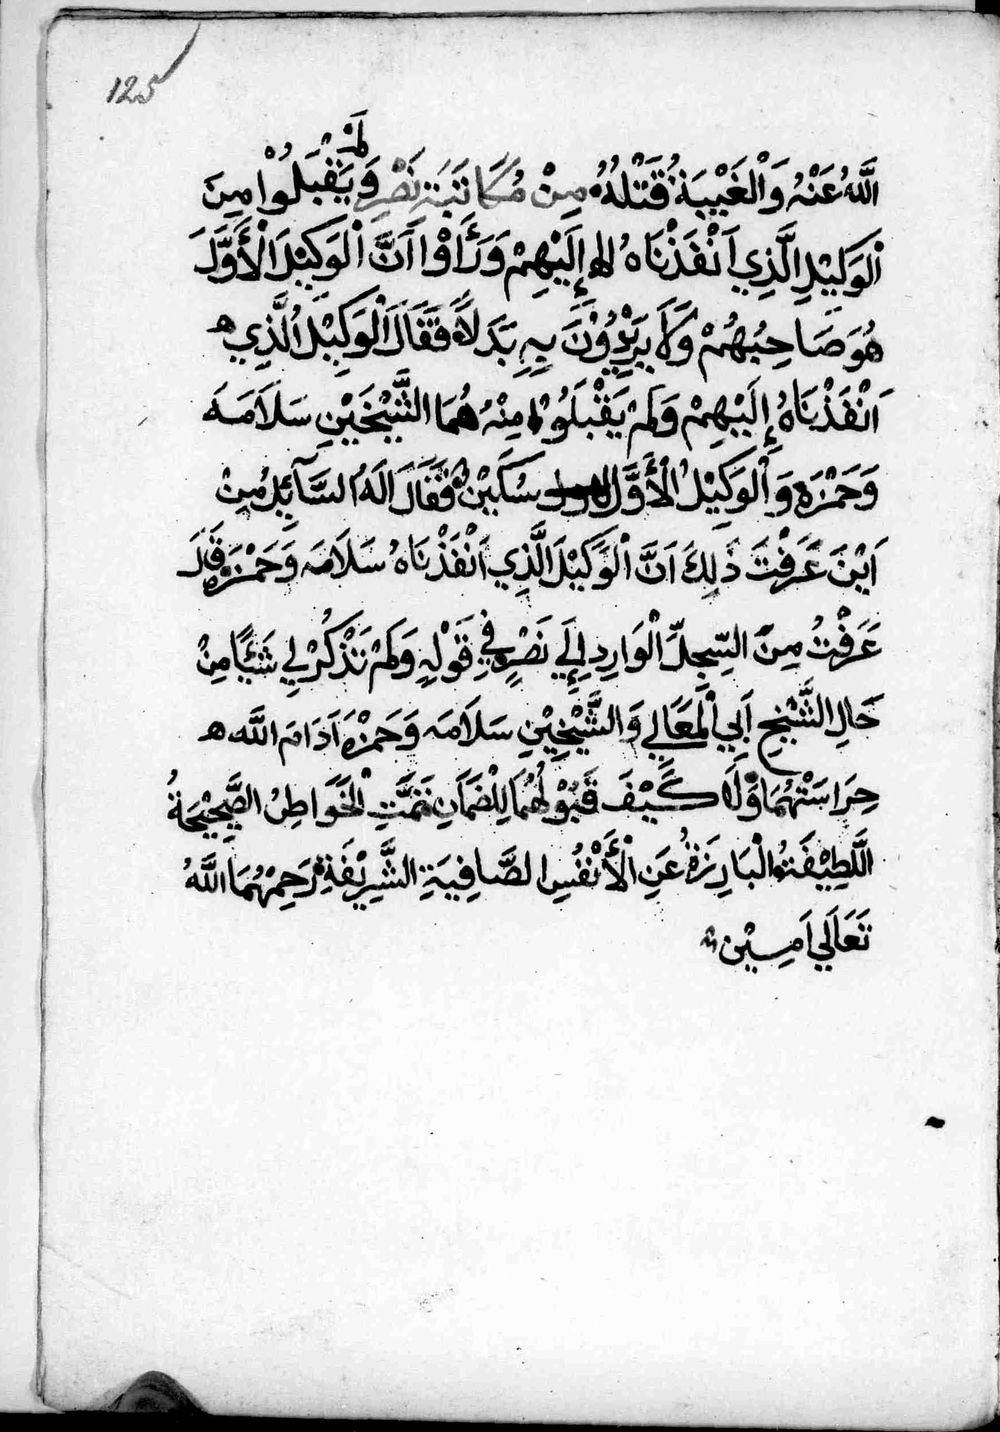 125
اللَّهُ عَنْهُ وَالْغَيْبَةُ قَتْلُهُ مِنْ مُكَاتَبَةِ نَصْرٍ وَلَمْ يَقْبَلُوا مِنَ
الْوَكِيْلِ الَّذِي اَنْفَذْنَاهُ إِلَيْهِمْ وَرَأَوْا اَنَّ الْوَكِيْلَ الْأَوَّلَ
هُوَ صَاحِبُهُمْ وَلَا يُرِيْدُوْنَ بِهِ بَدَلاً فَقَالَ الْوَكِيْلُ الَّذِي
اَنْفَذْنَاهُ إِلَيْهِمْ وَلَمْ يَقْبَلُوْا مِنْهُ هُمَا الشَّيْخَيْنِ سَلَامَه
وَحَمْزَه وَالْوَكِيْلُ الْأَوَّلُ سُكَيْنْ فَقَالَ لَهُ السَّآئِلُ مِنْ
اَيْنَ عَرَفْتَ ذٰلِكَ اَنَّ الْوَكِيْلَ الَّذِي اَنْفَذْنَاهُ سَلَامَه وَحَمْزَه قَدْ
عَرَفْتُ مِنَ السِّجِلِّ الْوَارِدِ إِلَي نَصْرٍ فِي قَوْلِهِ وَلَمْ تَذْكُرْ لِي شَيْئًا مِنْ
حَالِ الشَّيْخِ اَبِي الْمَعَالِي وَالشَّيْخِيْنِ سَلَامَه وَحَمْزَه اَدَامَ اللَّه
حِرَاسَتْهُمَا وَلَا كَيْفَ قَبُوْلُهُمَا لِلْضَمَانِ تَمَّتِ الْخَوَاطِرُ الصَّحِيْحَةُ
اللَّطِيْفَةُ الْبَارِزَةُ عَنِ الْأَنْفُسِ الصَّافِيَةِ الشَّرِيْفَةِ رَحِمْهُمَا اللَّهُ
تَعَالَي اَمِيْن